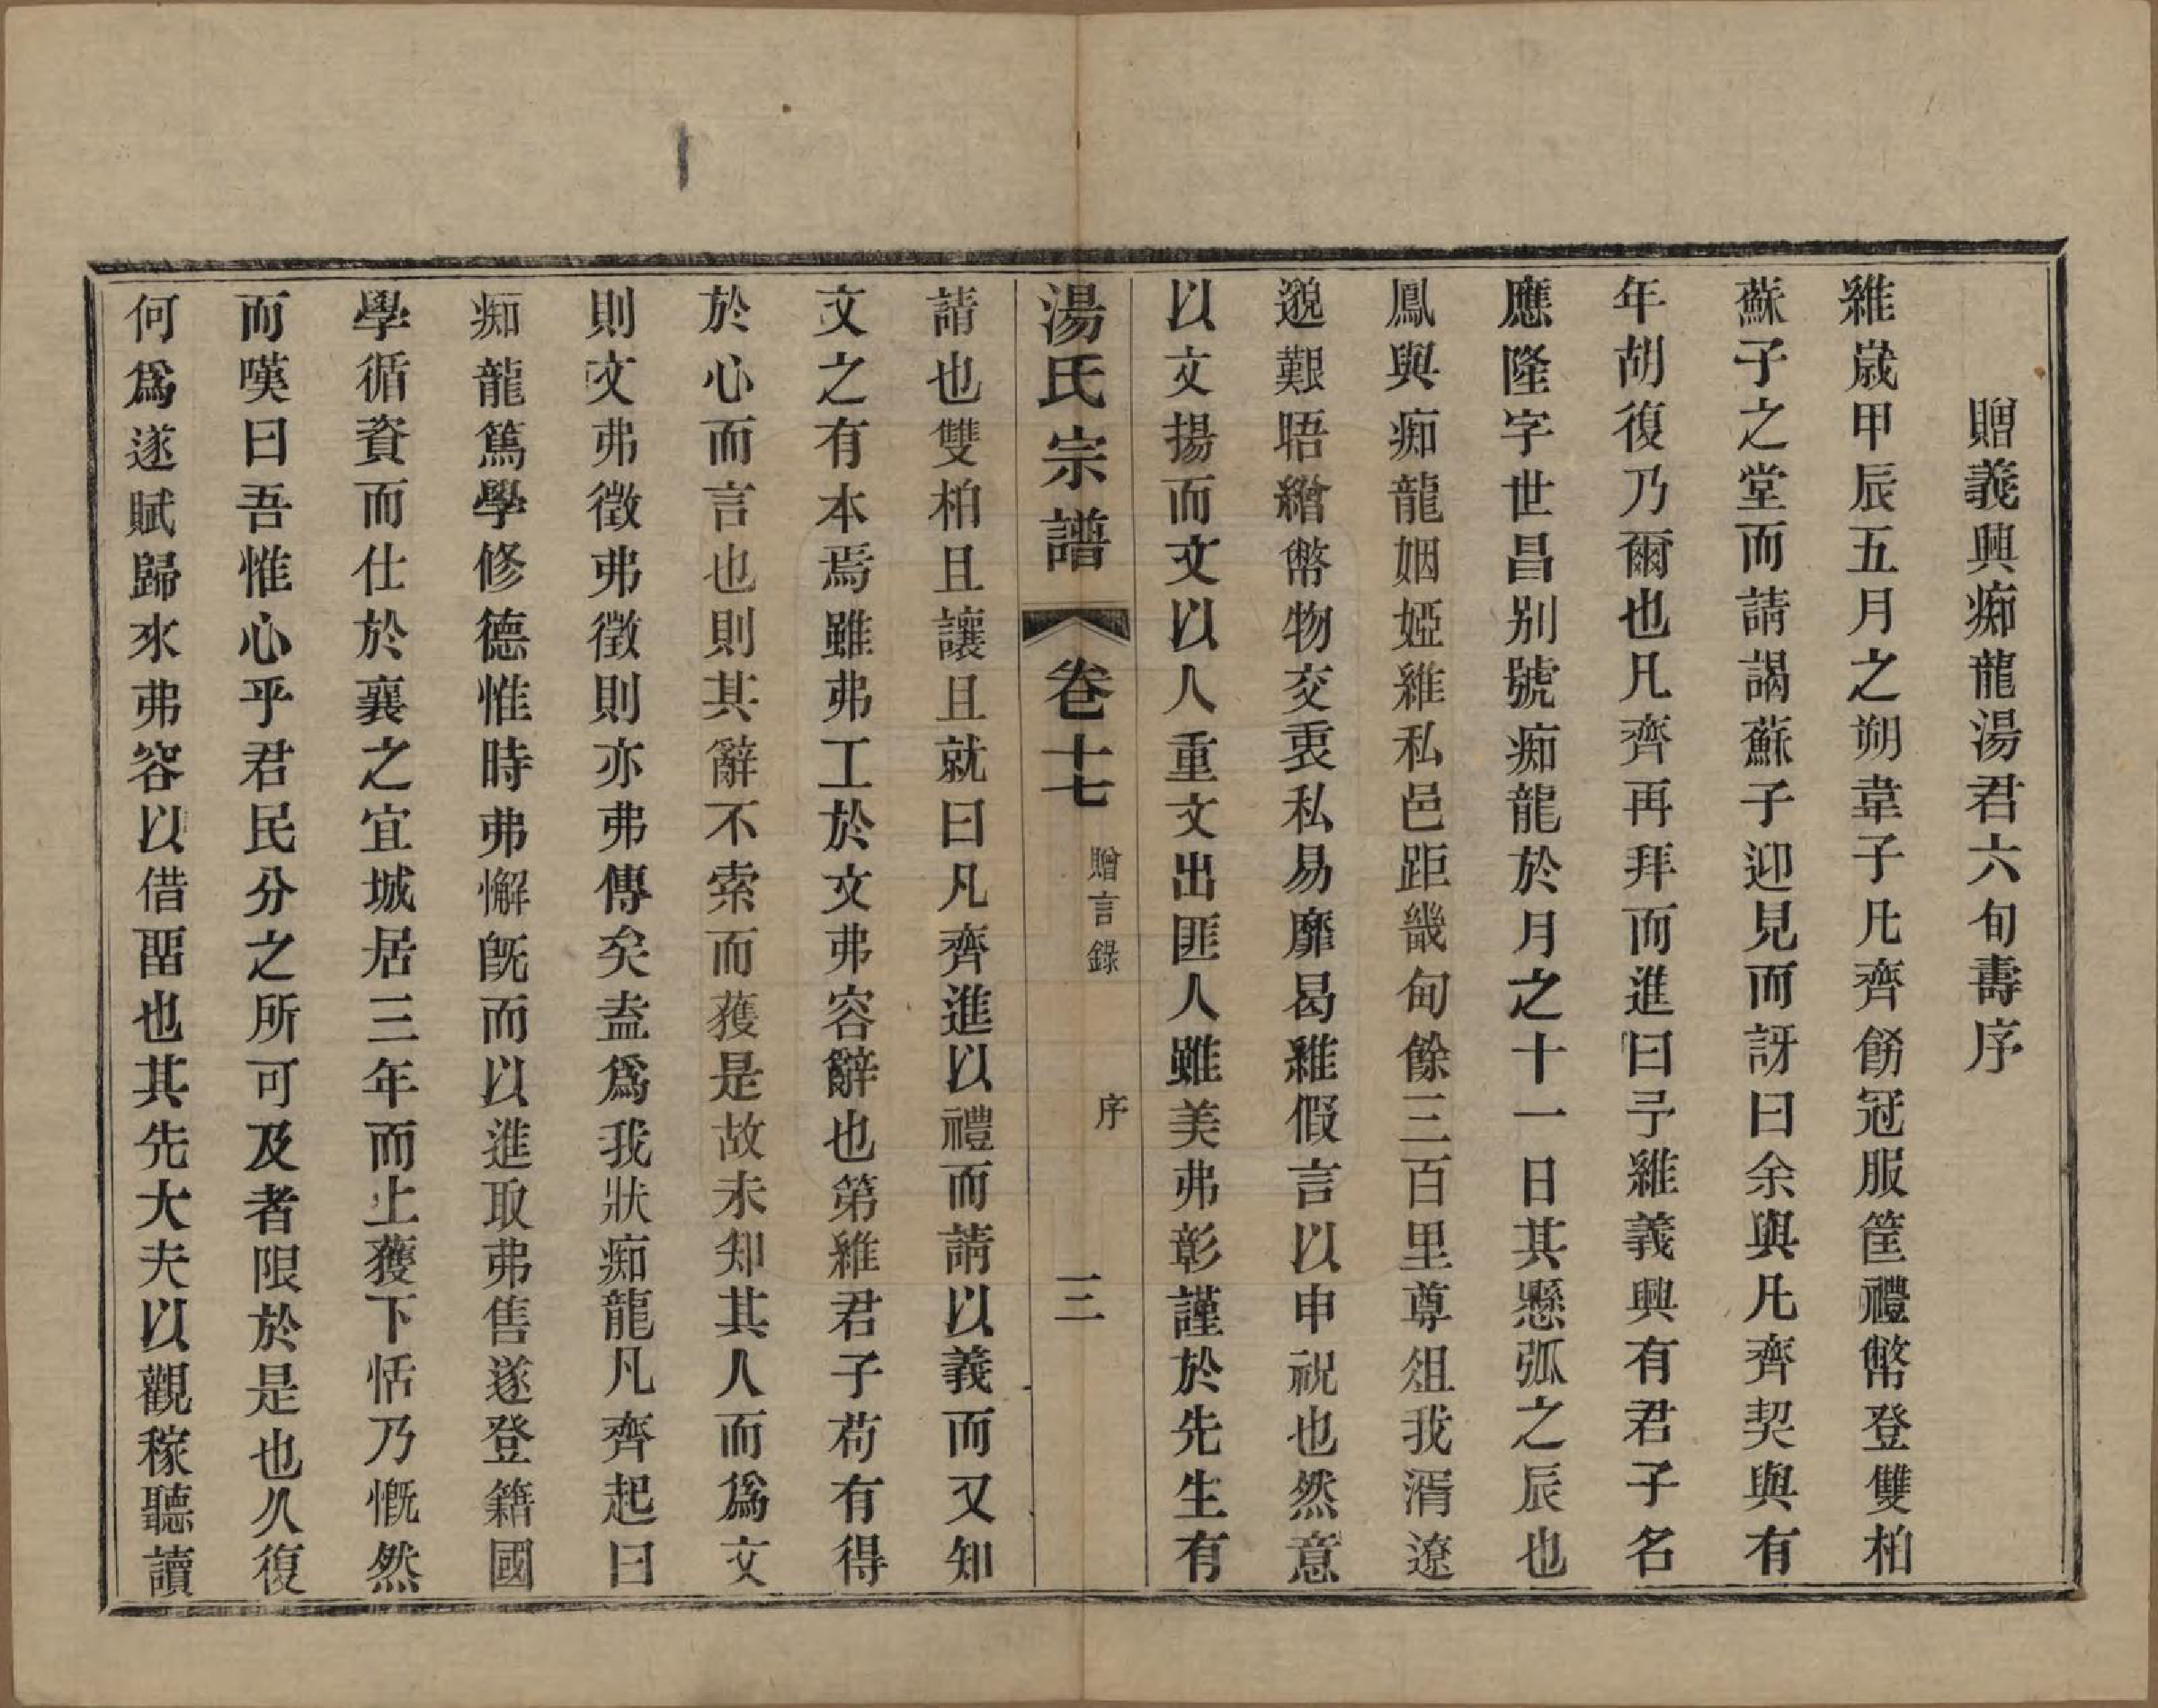 贈義興痴龍湯君六旬壽序
維歲甲辰五月之朔韋子凡齊餝冠服筐禮幣登雙柏
蘇子之堂而請謁蘇子迎見而訝曰余與凡齊契與有
年胡復乃爾也凡齊再拜而進曰予維義興有君子名
應隆字世昌别號痴龍於月之十一日其懸弧之辰也
鳳與痴龍姻婭維私邑距畿甸餘三百里尊俎我湑遼
邈艱晤繒幣物交衷私易靡曷維假言以申祝也然意
以文揚而文以人重文出匪人雖美弗彰謹於先生有
湯氏宗譜 卷十七 贈言錄 序 三
請也雙柏且讓且就曰凡齊進以禮而請以義而又知
文之有本焉雖弗工於文弗容辭也第維君子苟有得
於心而言也則其辭不索而獲是故未知其人而爲文
則文弗徵弗徵則亦弗傳矣盍爲我狀痴龍凡齊起曰
痴龍篤學修德惟時弗懈既而以進取弗售遂登籍國
學循資而仕於襄之宜城居三年而上獲下恬乃慨然
而嘆曰吾惟心乎君民分之所可及者限於是也久復
何爲遂賦歸來弗容以借畱也其先大夫以觀稼聽讀